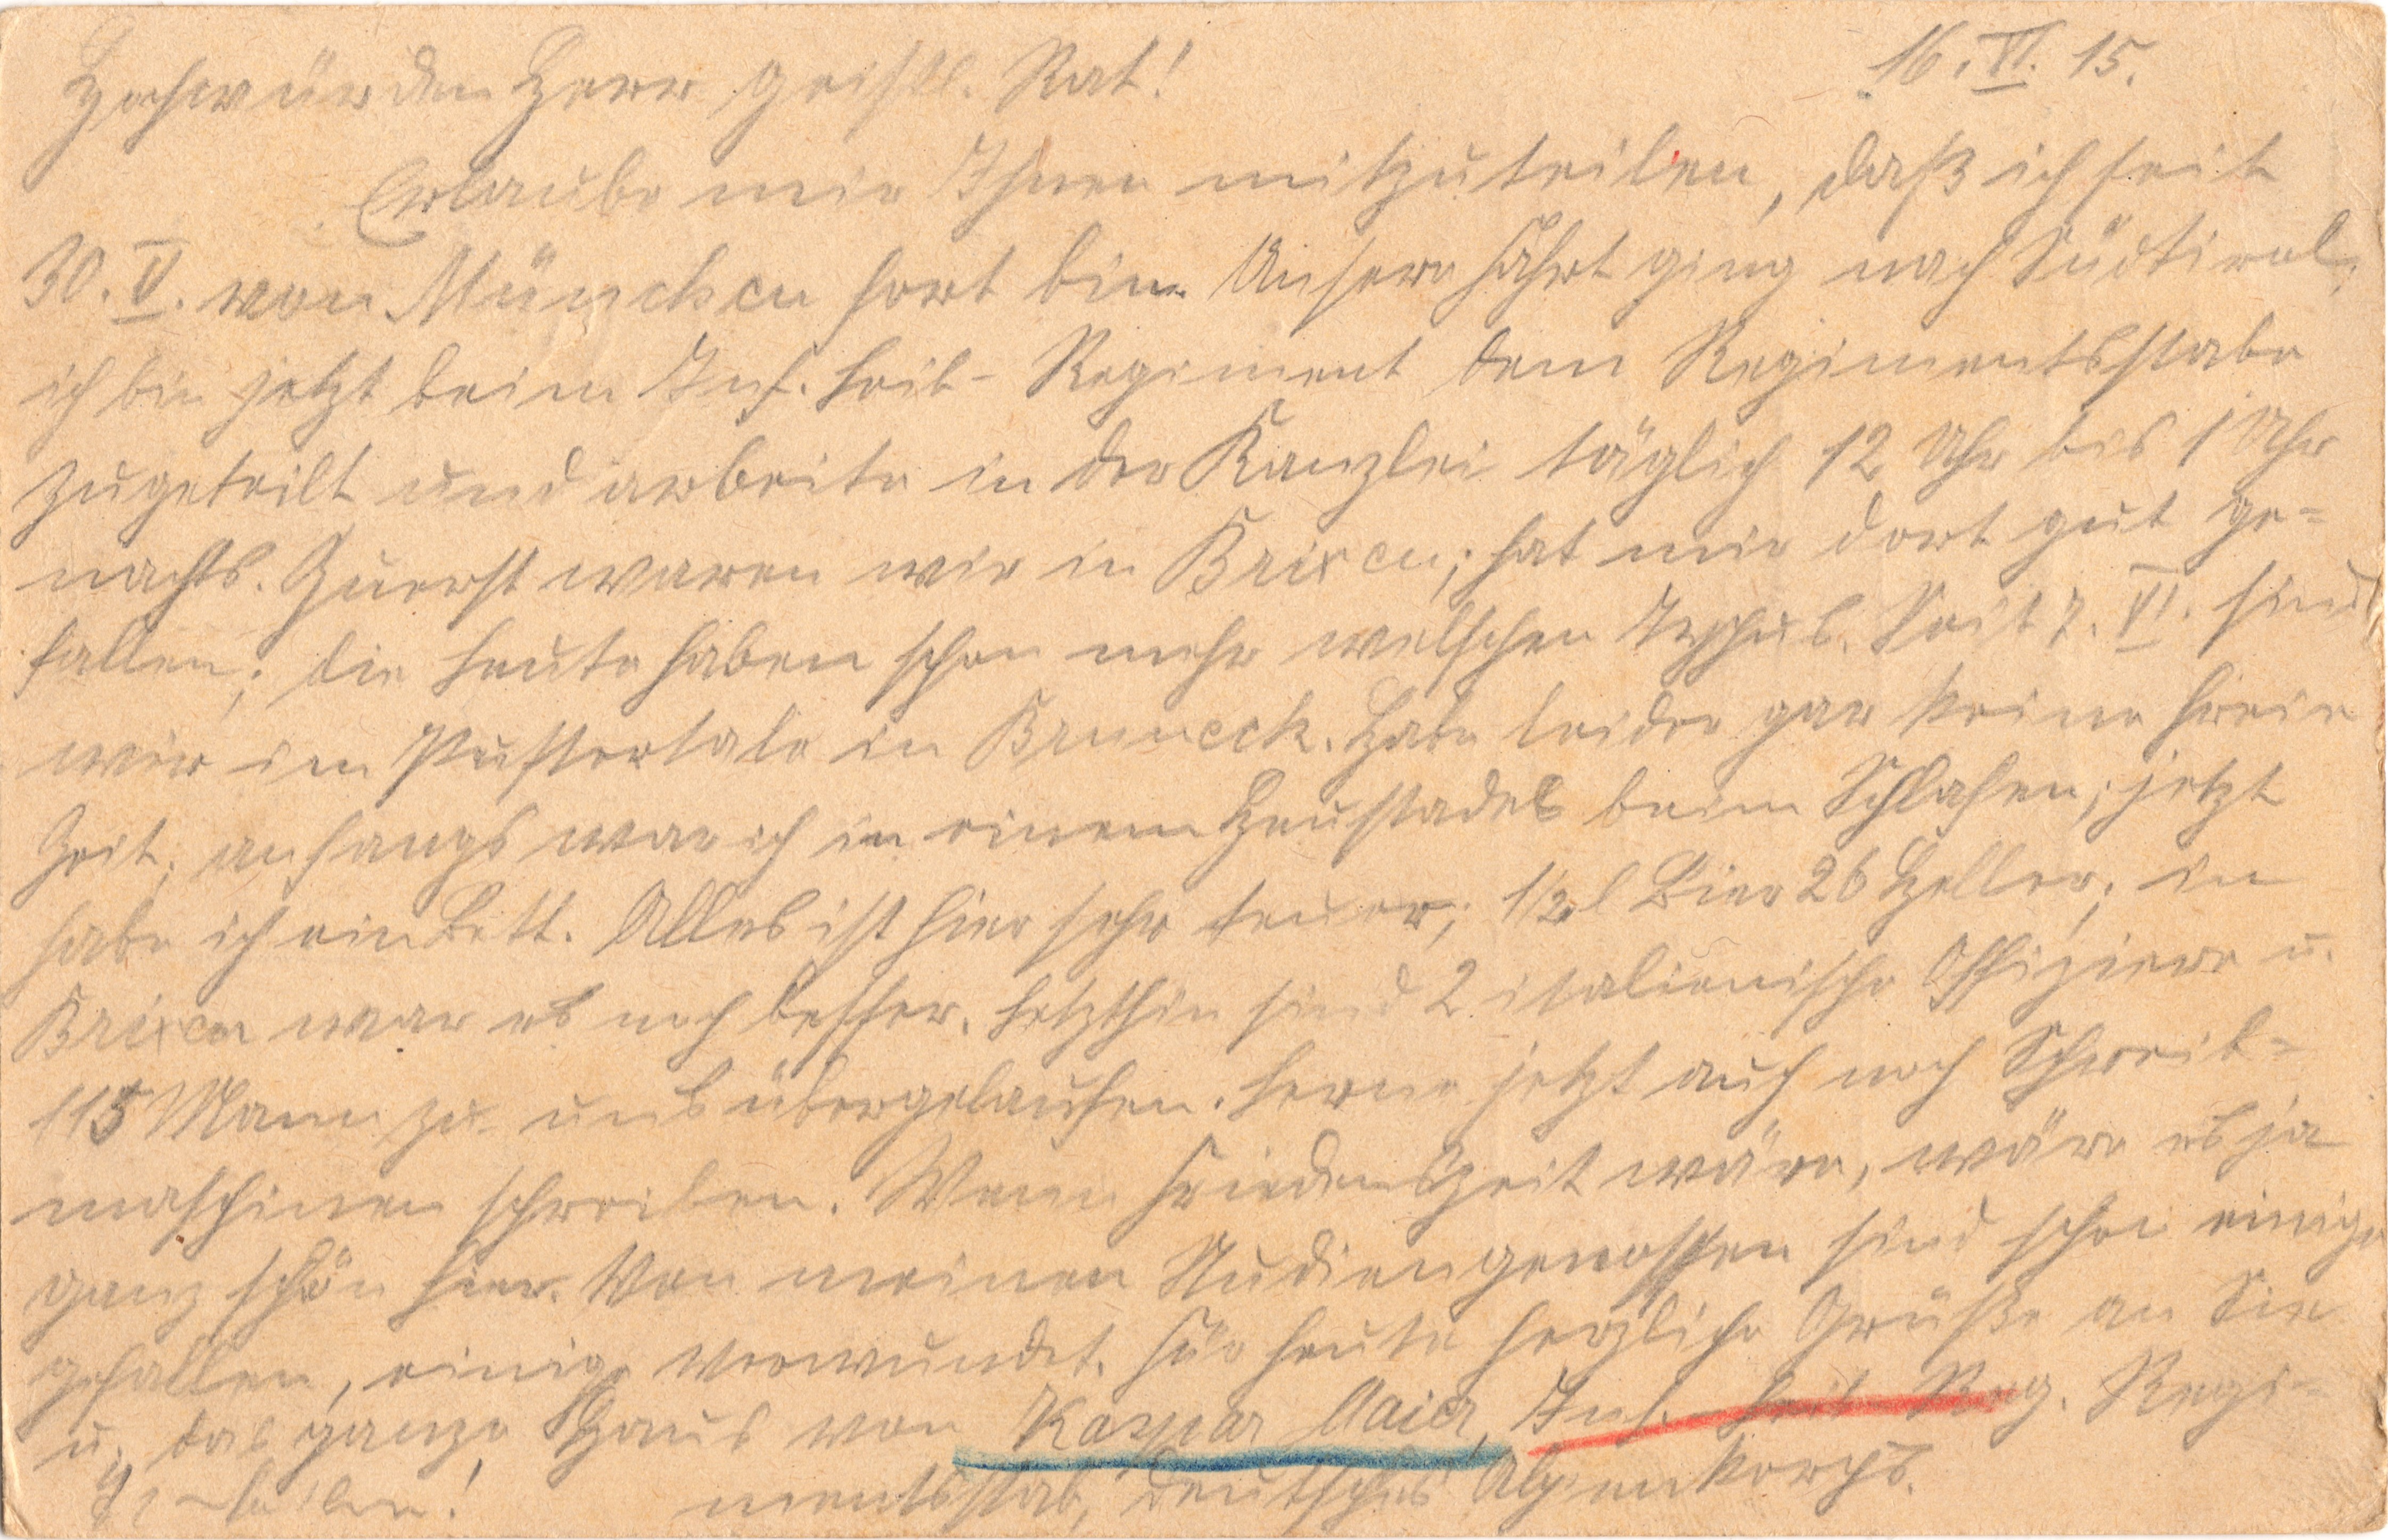 Hochwürden Herr geistl. Rat!
16. VI. 15.
Erlaube mir Ihnen mitzuteilen, daß ich seit
30. V. von München fort bin. Unsere Fahrt ging nach Südtirol;
ich bin jetzt beim Inf. Leib-Regiment dem Regimentsstabe
zugeteilt und arbeite in der Kanzlei täglich 12 Uhr bis 1 Uhr
nachts. Zuerst waren wir in Brixen; hat mir dort gut ge=
fallen; die Leute haben schon mehr welschen Typus. Seit 7. VI. sind
wir im Pustertale in Bruneck. Habe leider gar keine freie
Zeit; anfangs war ich in einem Heustadel beim Schlafen; jetzt
habe ich ein Bett. Alles ist hier sehr teuer; 1/2 l Bier 26 Heller; in
Brixen war es noch besser. Letzthin sind 2 italienische Offiziere u.
115 Mann zu uns übergelaufen. Lerne jetzt auch noch Schreib=
maschinen schreiben. Wenn Friedenszeit wäre, wäre es ja
ganz schön hier. Von meinen Studiengenossen sind schon einige
gefallen, einige verwundet. Für heute herzliche Grüße an Sie
u. das ganze Haus von Kaspar Maier, Inf. Leib-Reg. Regi=
mentsstab, Deutsches Alpenkorps.